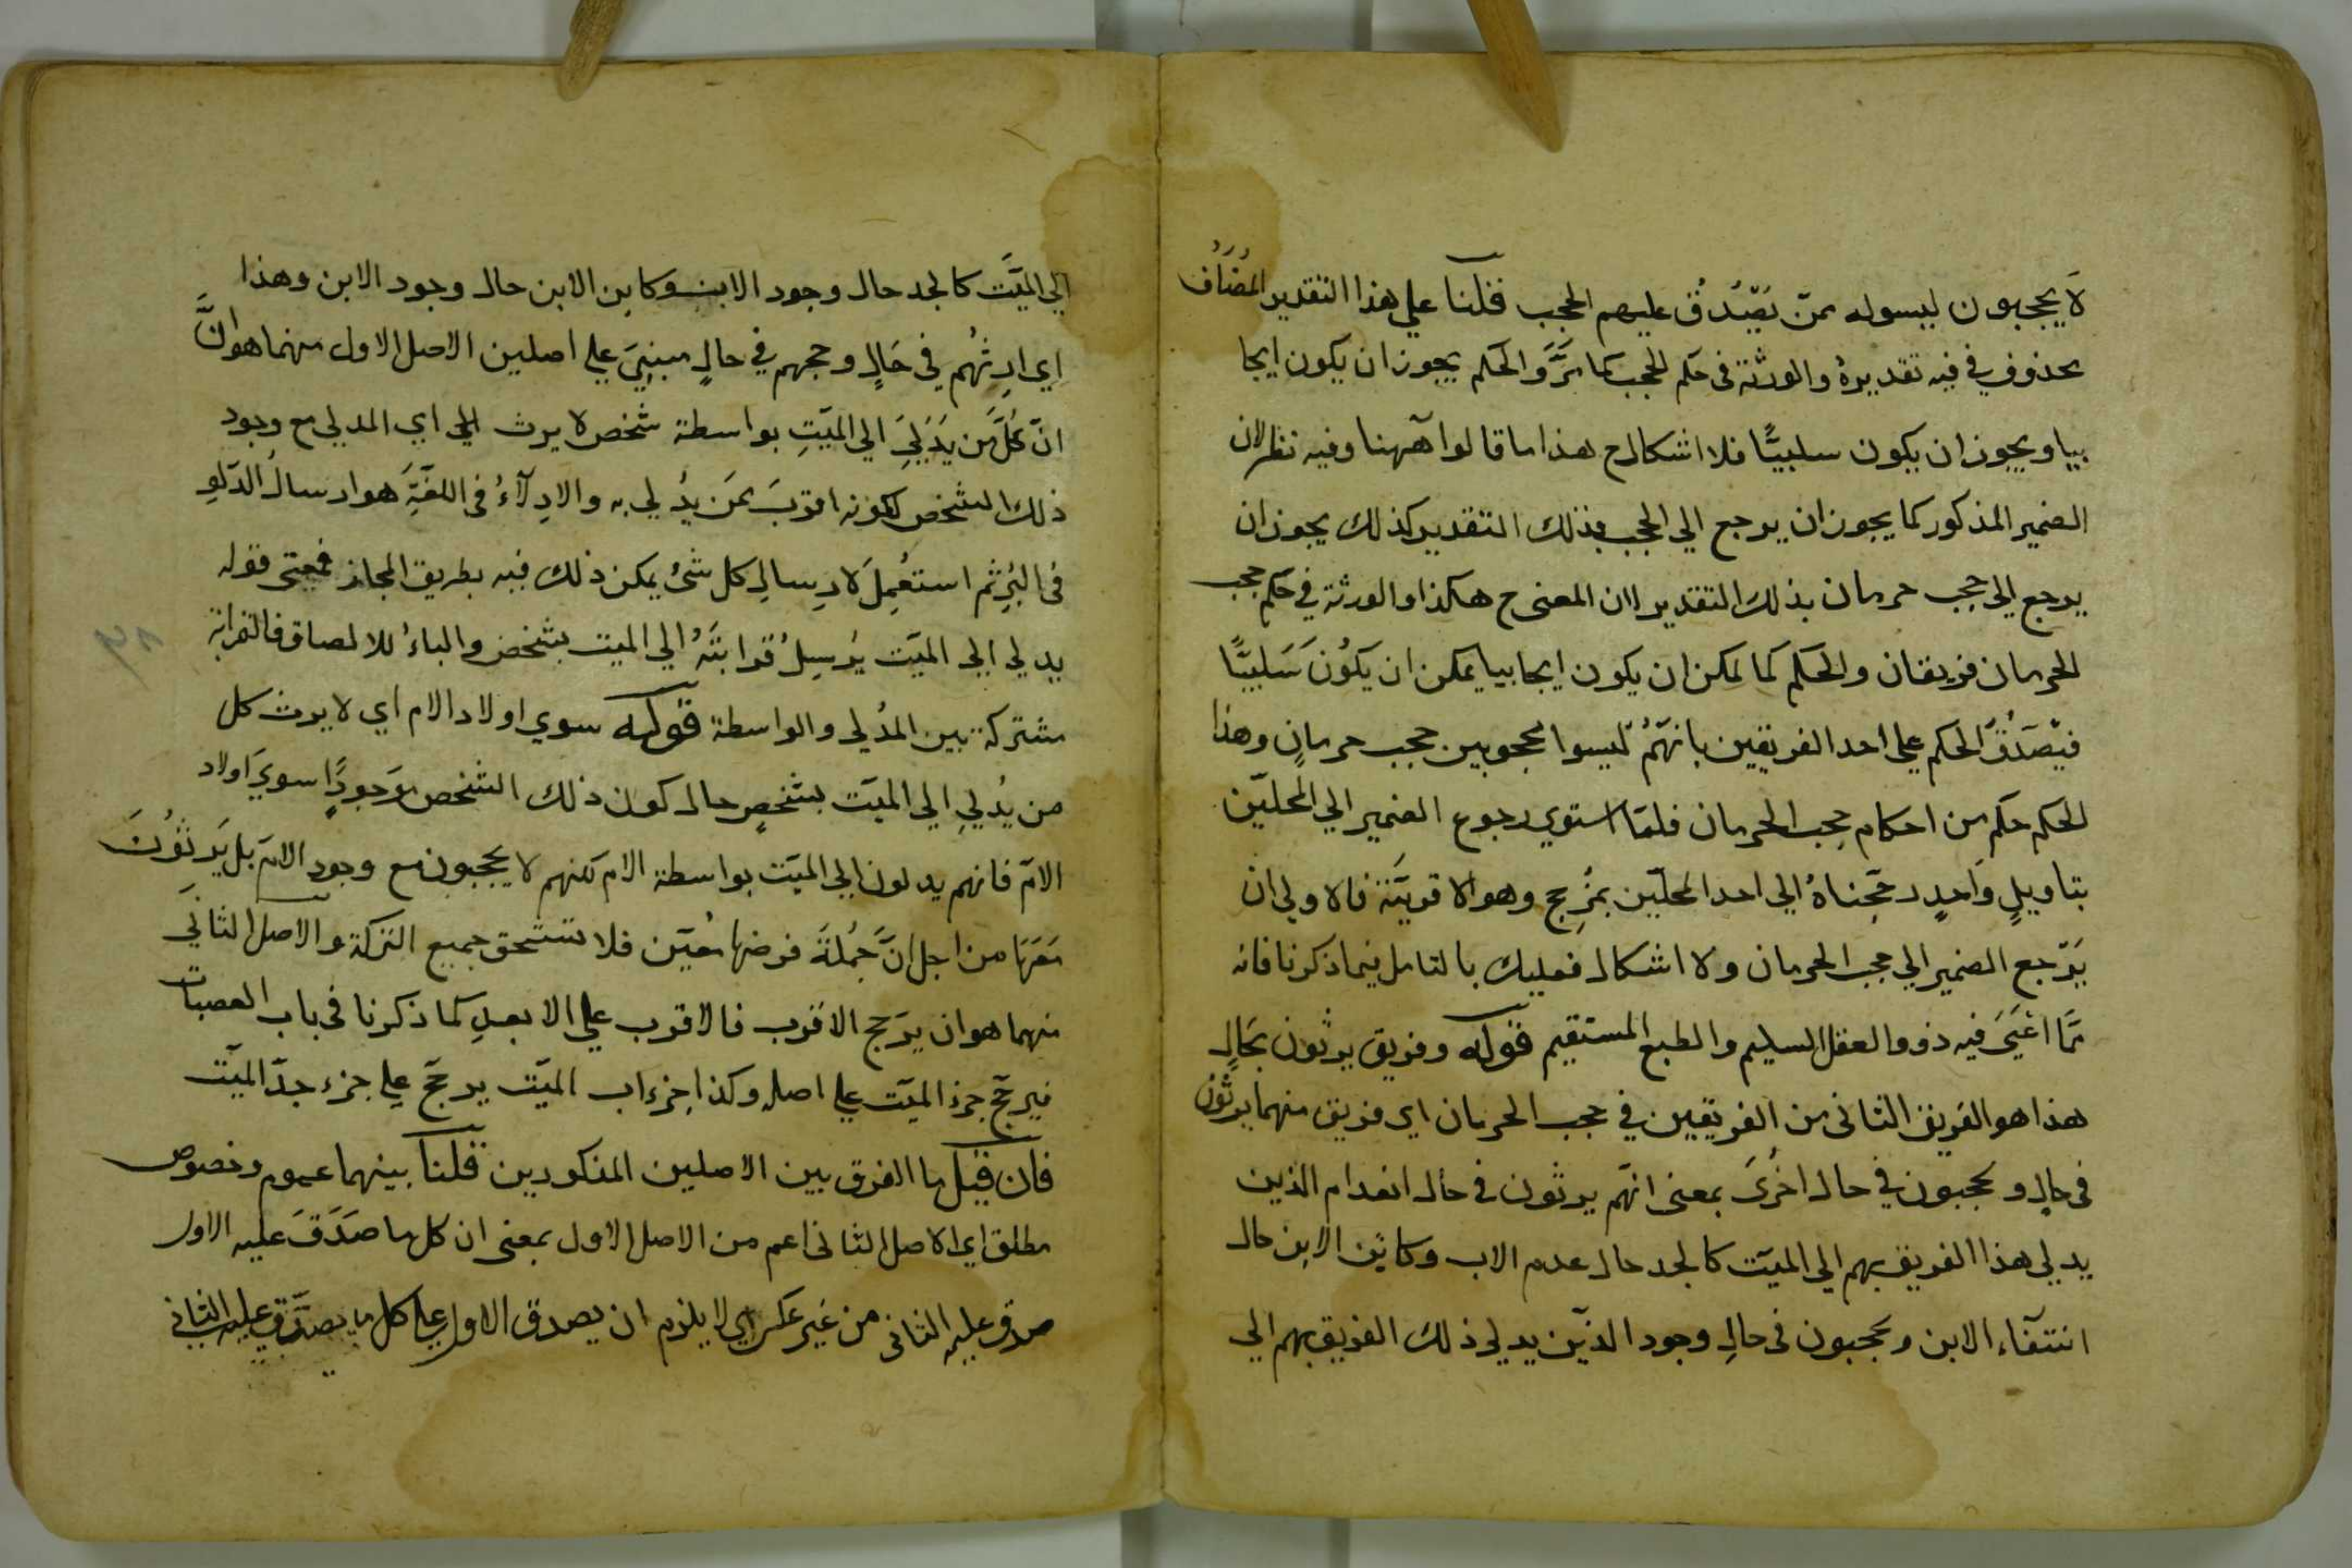 لا يحجبون ليسوا ممن يصدق عليهم الحجب قلنا علي هذا التقدير المضاف
محذوف في فيه تقديره والورثة في حكم الحجب كما مر والحكم يجوز ان يكون ايجا
بيا ويجوز ان يكون سلبيًّا فلا اشكال ح هذا ما قالوا ههنا وفيه نظر لان
الضمير المذكور كما يجوز ان يرجع الي الحجب بذلك التقدير كذلك يجوز ان
يرجع الي حجب حرمان بذلك التقدير اذ المعنى ح هكذا والورثة في حكم حجب
الحرمان فريقان والحكم كما يمكن ان يكون ايجابيا يمكن ان يكون سَلبيًّا
فيصدق الحكم علي احد الفريقين بانهم ليسوا بمحجوبين حجب حرمان وهذا
الحكم حكم من احكام حجب الحرمان فلما استوي رجوع الضمير الي المحلين
بتاويل واحد رجحناه الي احد المحلين بمرجح وهو الاقربية فالاولي ان
يرجع الضمير الي حجب الحرمان ولا اشكال فعليك بالتامل فيما ذكرنا فانه
مما اعيى فيه ذوو العقل السليم والطبع المستقيم قوله وفريق يرثون بحال
هذا هو الفريق الثاني من الفريقين في حجب الحرمان اي فريق منهما يرثون
في حال ويحجبون في حال اخرى بمعنى انهم يرثون في حال انعدام الذين
يدلي هذا الفريق بهم الي الميت كالجد حال عدم الاب وكابن الابن حال
انتفاء الابن ويحجبون في حال وجود الذين يدلي ذلك الفريق بهم الي
الي الميت كالجد حال وجود الاب وكابن الابن حال وجود الابن وهذا
اي ارثهم في حال وحجبهم في حال مبني علي اصلين الاصل الاول منهما هو ان
انّ كل من يدلي الي الميت بواسطة شخص لا يرث الي اي المدلي مع وجود
ذلك الشخص لكونه اقرب ممن يدلي به والادلاء في اللغة هو ارسال الدلو
في البئر ثم استعمل لارسال كل شئ يمكن ذلك فيه بطريق المجاز فمعنى قوله
يدلي الي الميت يرسل قرابته الي الميت بشخص والباء للالصاق فالقرابة
مشتركة بين المدلي والواسطة قوله سوي اولاد الام اي لا يرث كل
من يدلي الي الميت بشخص حال كون ذلك الشخص موجودًا سوي اولاد
الام فانهم يدلون الي الميت بواسطة الام لكنهم لا يحجبون مع وجود الام بل يرثون
معها من اجل ان جملة فرضها معين فلا تستحق جميع التركة والاصل الثاني
منهما هو ان يرجح الاقرب فالاقرب علي الابعد كما ذكرنا في باب العصبات
فيرجح جزء الميت علي اصله وكذا جزء اب الميت يرجح علي جزء جد الميت
فان قيل ما الفرق بين الاصلين المذكورين قلنا بينهما عموم وخصوص
مطلق اي الاصل الثاني اعم من الاصل الاول بمعنى ان كل ما صدق عليه الاول
صدق عليه الثاني من غير عكس اي لا يلزم ان يصدق الاول علي كل ما يصدق عليه الثاني